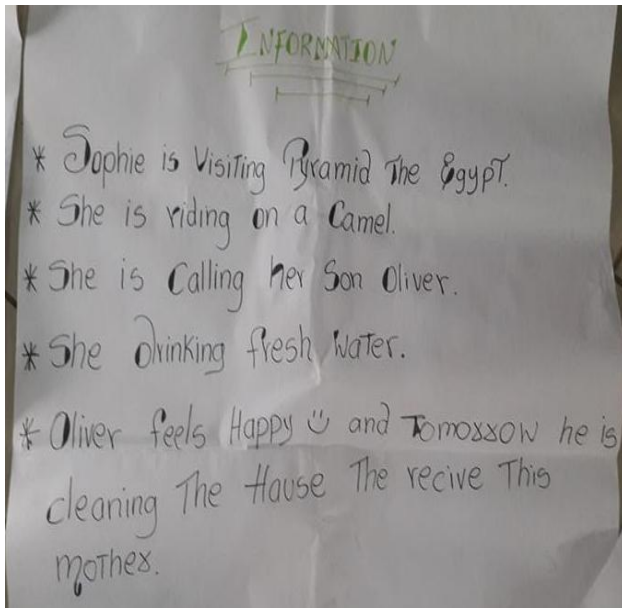 INFORMATION
* Sophie is Visiting Pyramid The Egypt.
* She is riding on a Camel.
* She is Calling her Son Oliver.
* She drinking fresh water.
* Oliver feels Happy ☺ and Tomorrow he is
cleaning The Hause The recive This
mother.